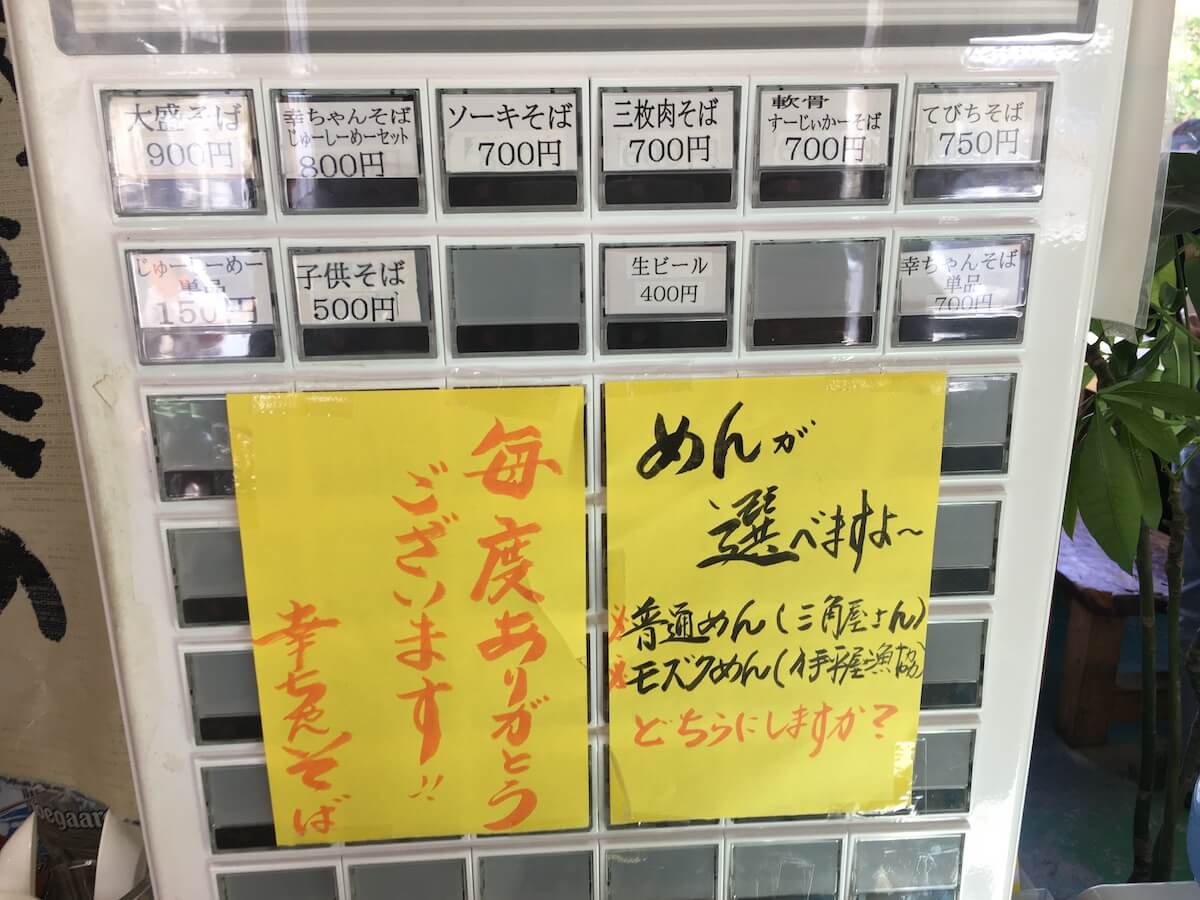 大盛そば
900円
幸ちゃんそば
じゅーしーめーセット
800円
ソーキそば
700円
三枚肉そば
700円
軟骨
すーじぃかーそば
700円
てびちそば
750円
じゅーしーめー
単品
150円
子供そば
500円
生ビール
400円
幸ちゃんそば
単品
700円
毎度ありがとう
ございます!!
幸ちゃんそば
めんが
選べますよ～
※普通めん(三角屋さん)
※モズクめん(伊平屋漁協)
どちらにしますか?
egaar